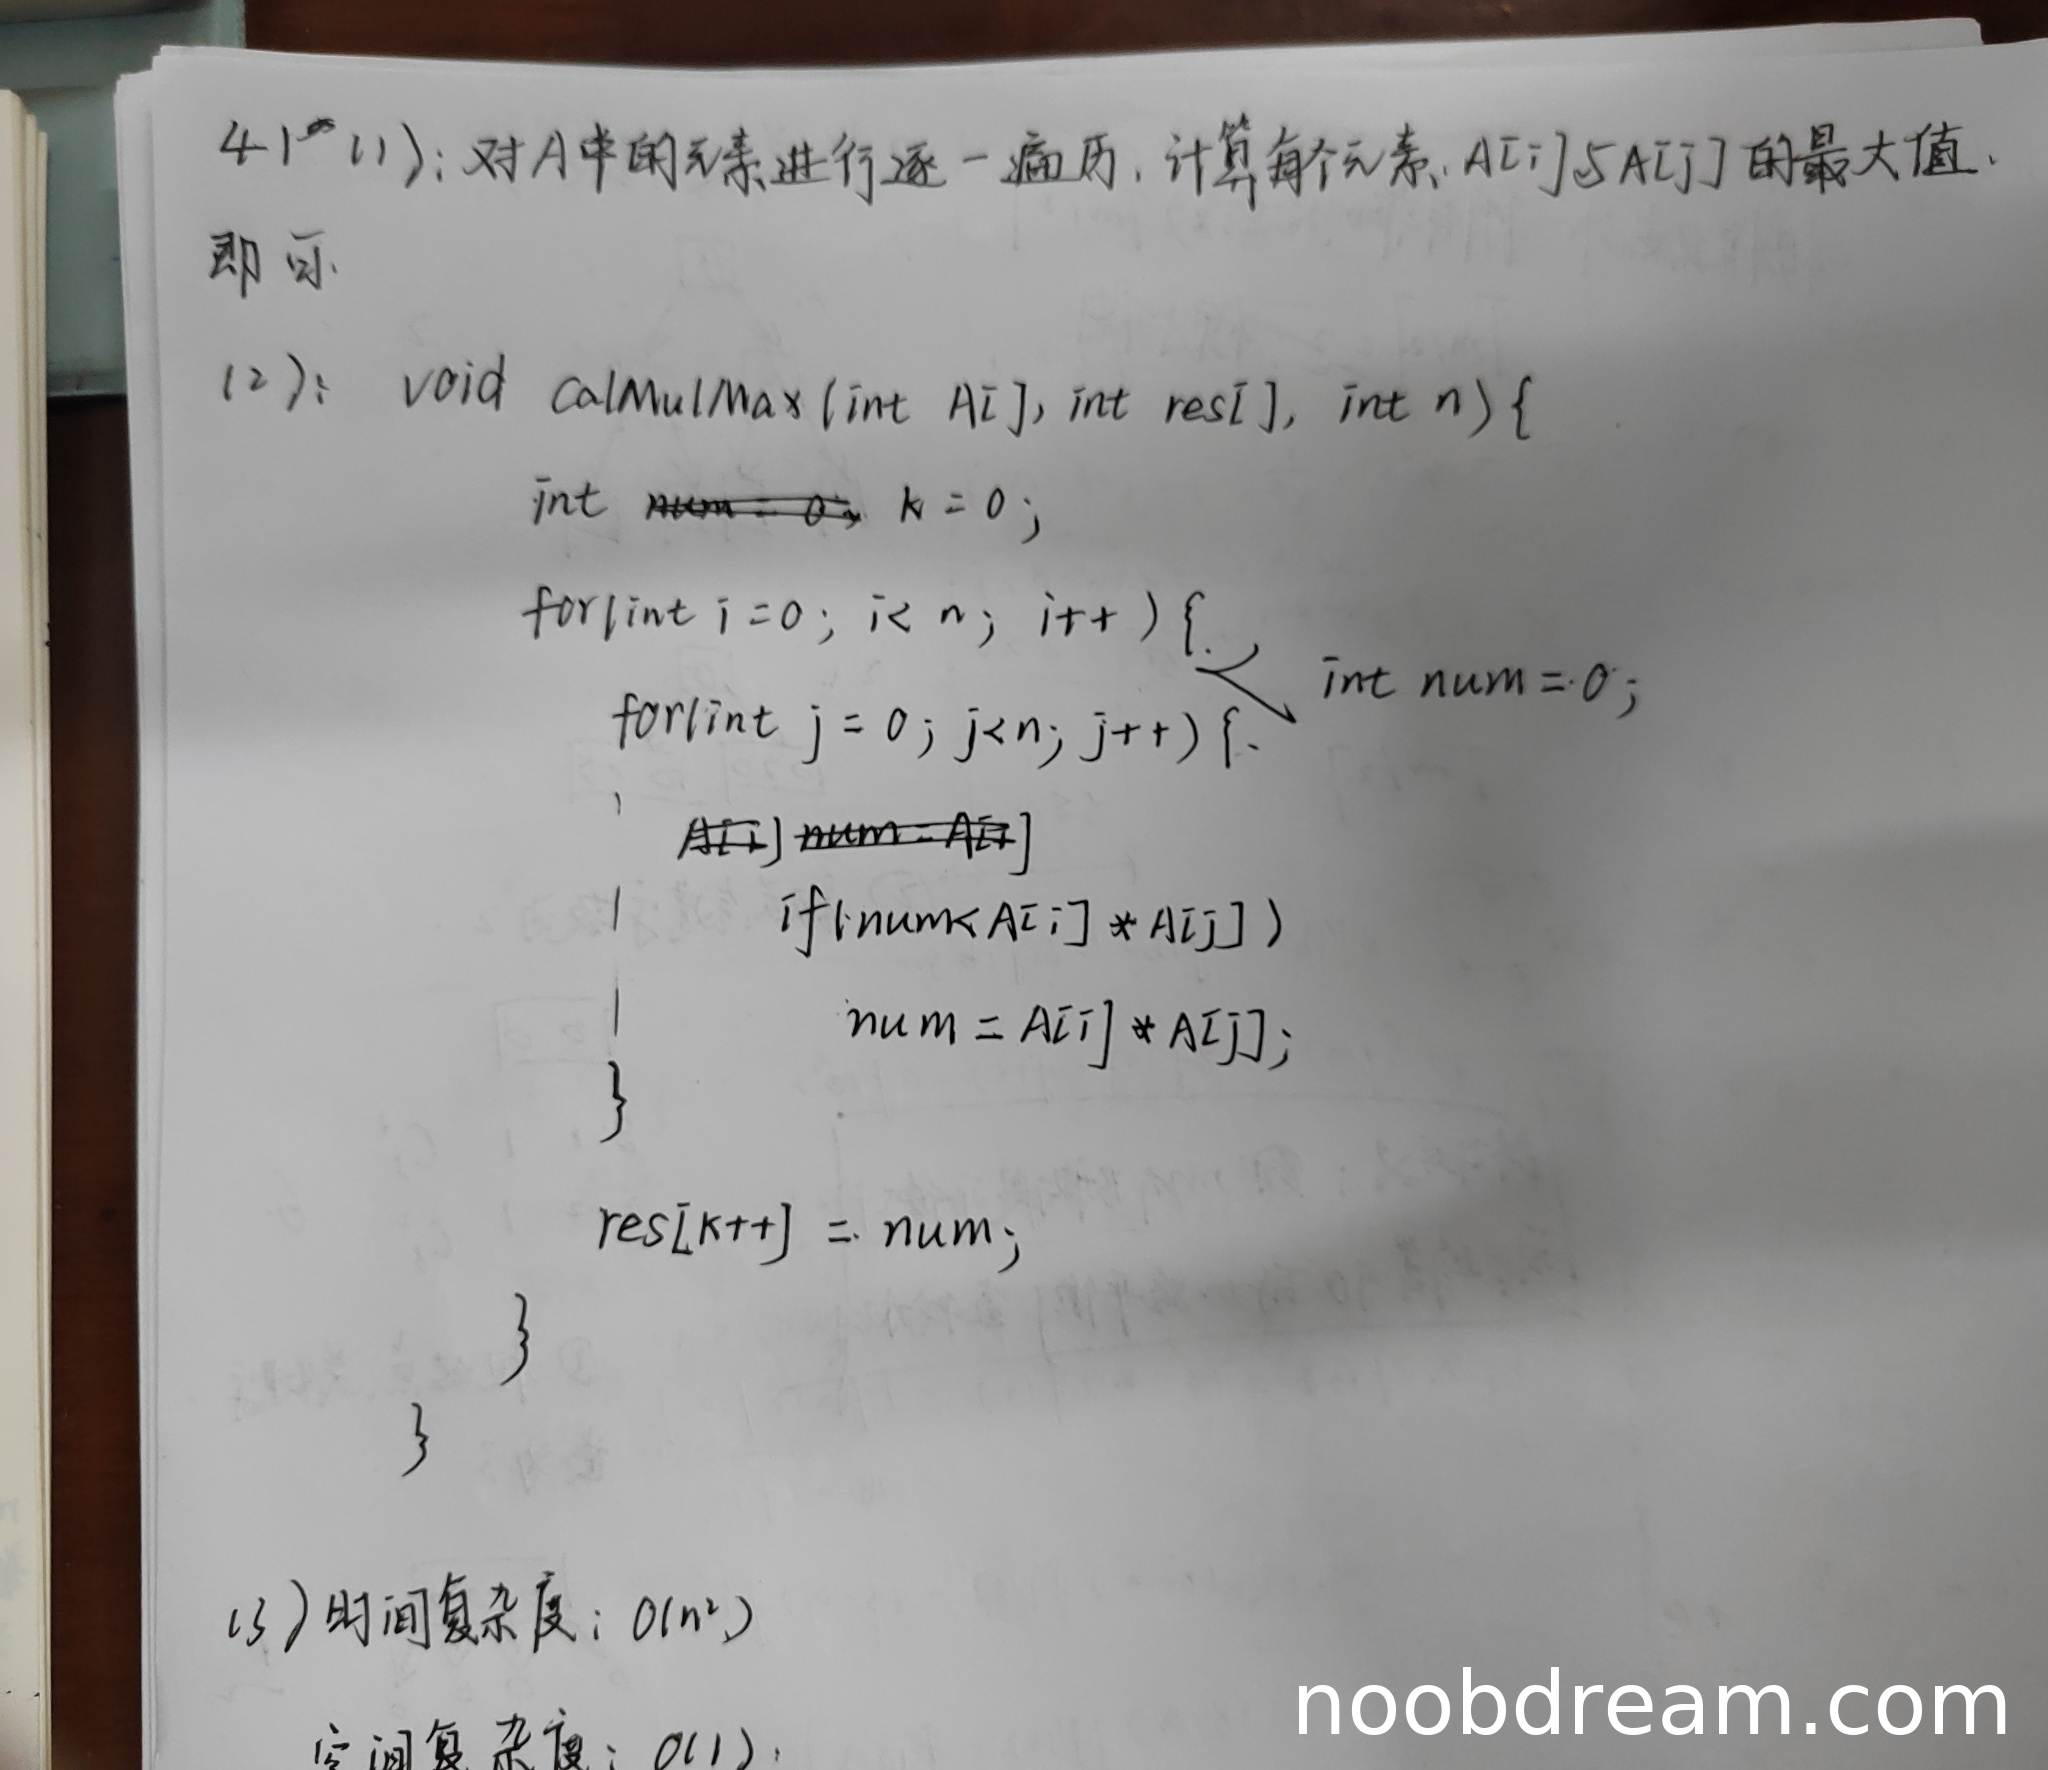 41 (1): 对A中的元素进行逐一遍历, 计算每个元素 A[i]与A[j]的最大值.
即可.
(2): void CalMulMax(int A[], int res[], int n){
int k = 0;
for(int i=0; i< n; i++ ){
int num = 0;
for(int j = 0; j<n; j++){
if(num< A[i] * A[j])
num = A[i] * A[j];
}
res[k++] = num;
}
}
(3) 时间复杂度: O(n²)
空间复杂度: O(1).
noobdream.com